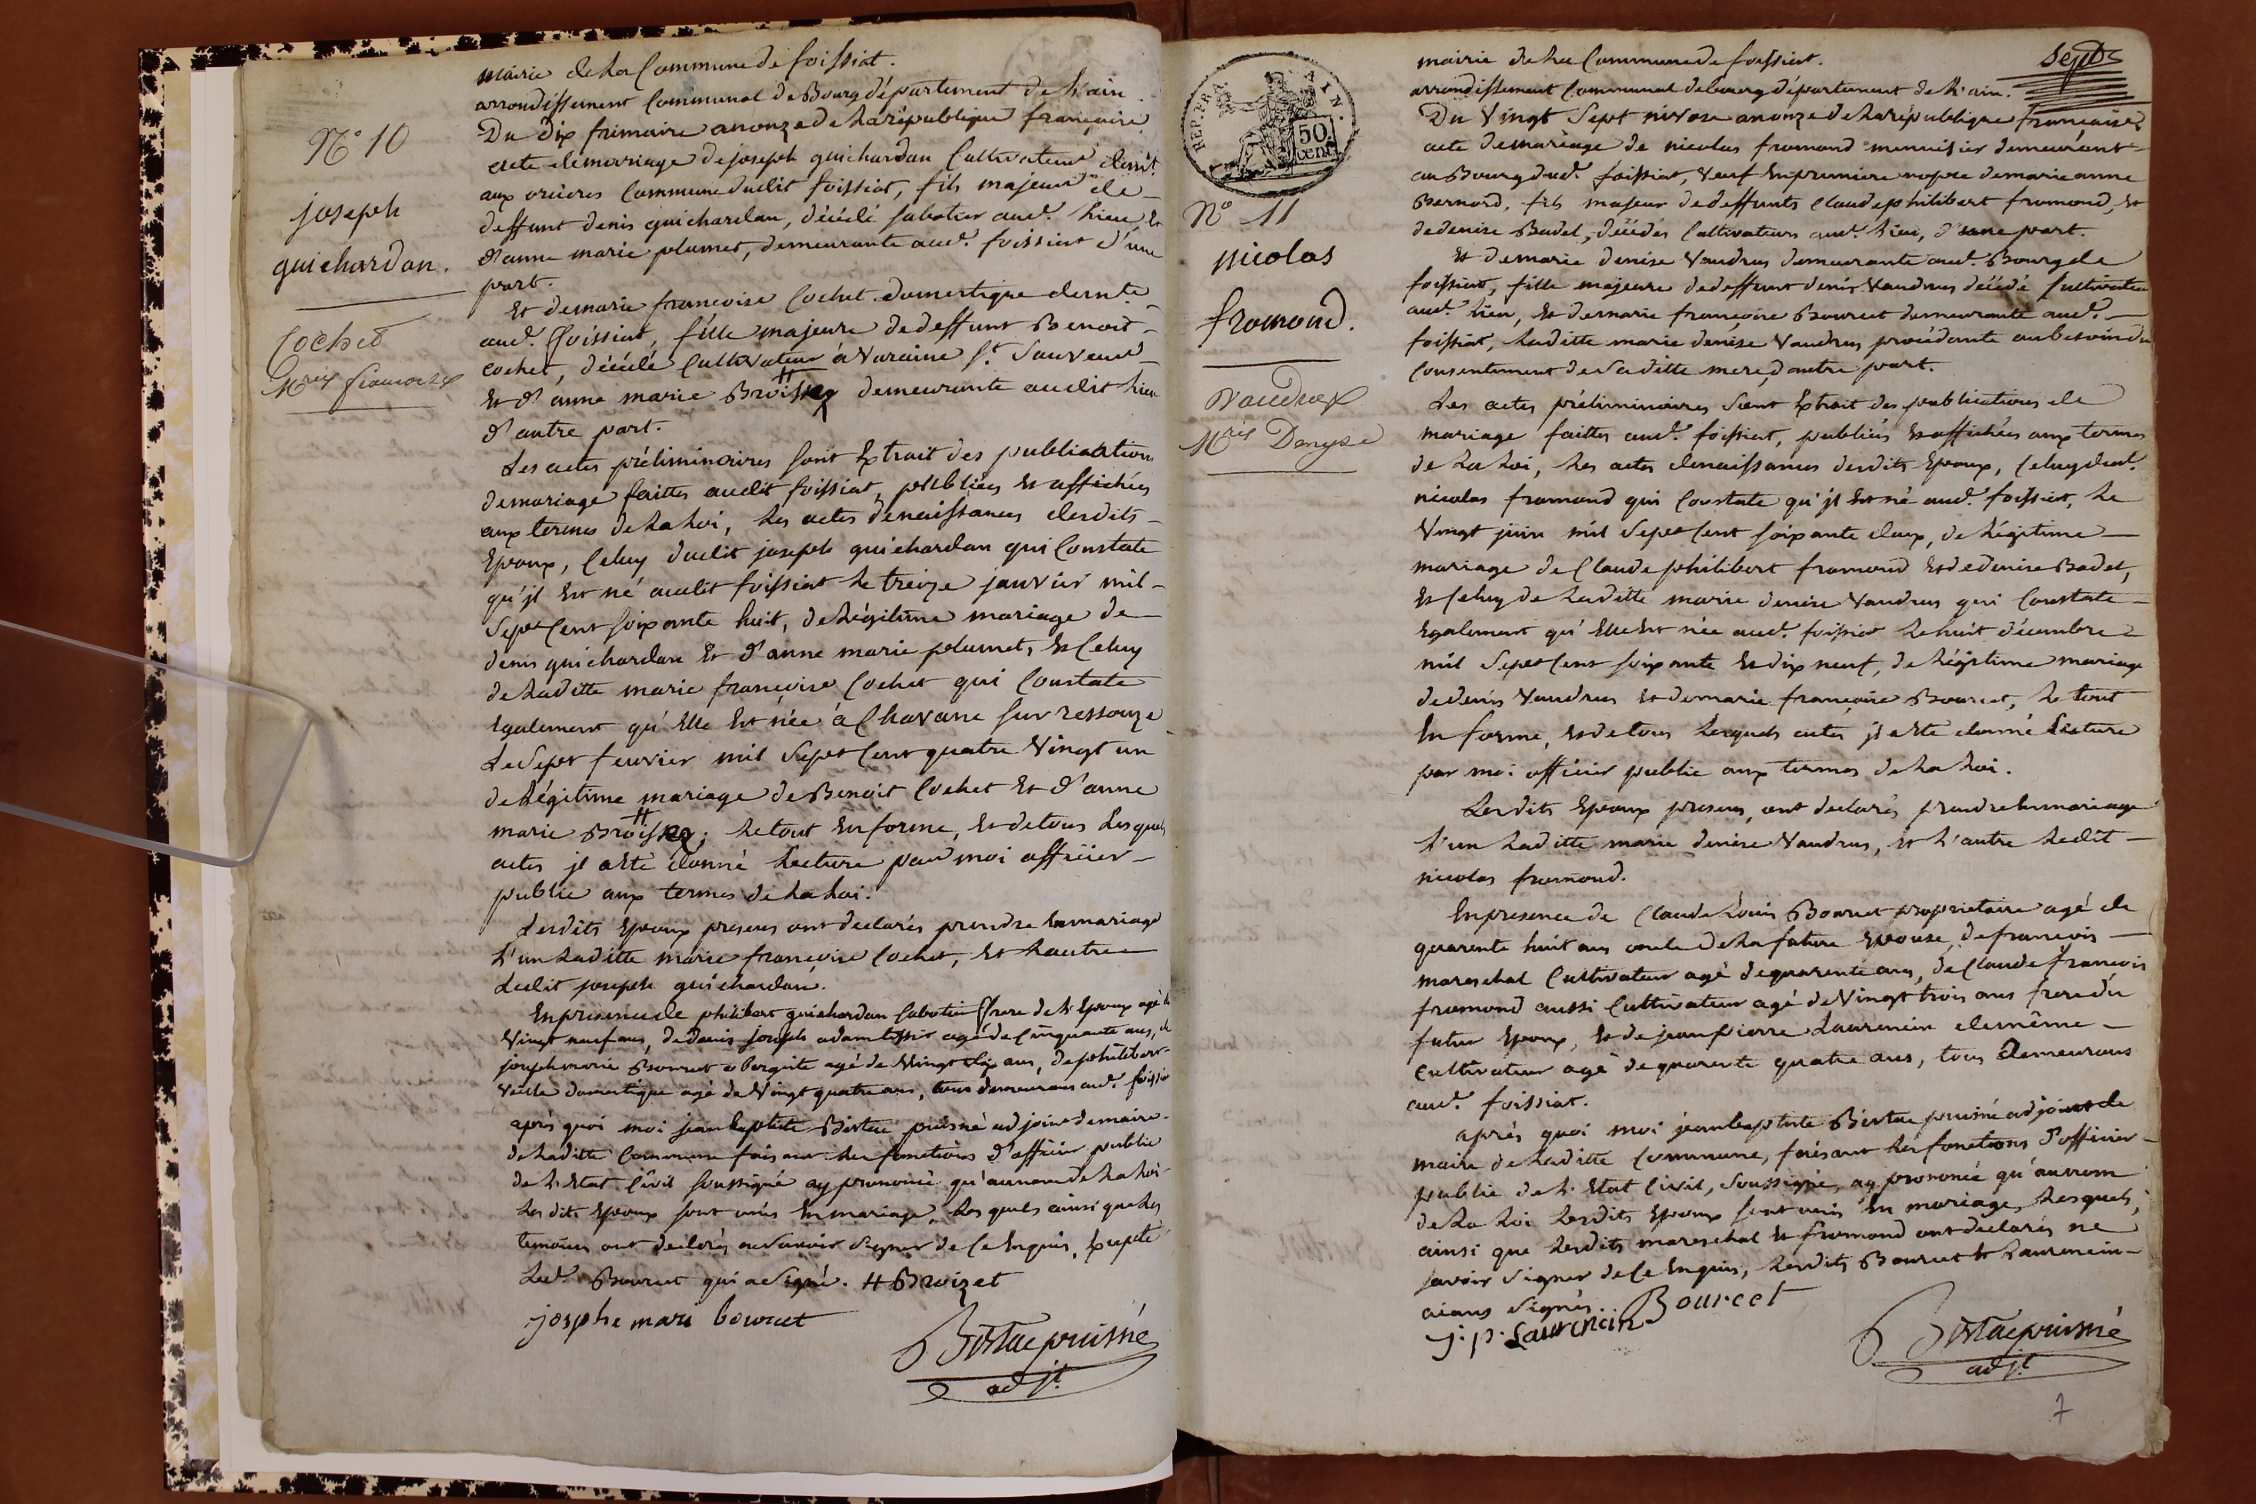 mairie de La Commune de foissiat.
arrondissement Communal de Bourg département de L'ain.
Du dix frimaire an onze de La république française
acte de mariage de joseph guichardan Cultivateur demt.
aux orcieres Commune dudit foissiat, fils majeur de
deffunt denis guichardan, décédé sabotier aud. Lieu, Et
d'anne marie plumet, demeurante aud. foissiat d'une
part.
Et de marie françoise Cochet domestique demte.
aud. foissiat, fille majeure de deffunt Benoit
cochet, décédé Cultivateur à Varaine St. Sauveur
Et d'anne marie # demeurante audit Lieu
d'autre part.
Les actes préliminaires sont Extrait des publications
de mariage faittes audit foissiat, publiées Et affichées
aux termes de La Loi, Les actes de naissances desdits
Epoux, Celuy dudit joseph guichardan qui Constate
qu'jl Est né audit foissiat Le treize janvier mil
Sept Cent soixante huit, de Légitime mariage de
denis guichardan Et d'anne marie plumet, Et Celuy
de Laditte marie françoise Cochet qui Constate
Egalement qu'Elle Est née à Chavane sur ressouze
Le Sept fevrier mil Sept Cent quatre Vingt un
de Légitime mariage de Benoit Cochet Et d'anne
marie #. Le tout En forme, Et de tous Lesquels
actes jl a Eté donné Lecture par moi officier
public aux termes de La Loi.
Lesdits Epoux presens ont declarés prendre En mariage
L'un Laditte marie françoise Cochet, Et L'autre
Ledit joseph guichardan.
En presence de philibert guichardan Sabotier frere de L'Epoux agé de
Vingt neuf ans, de denis joseph adam agé de Cinquante ans, de
joseph marie Bourcet obergiste agé de Vingt ans, de philibert
domestique agé de Vingt quatre ans, tous demeurans aud. foissiat
après quoi moi jean baptiste puisné adjoint de maire
de Laditte Commune faisant Les fonctions d'officier public
de L'Etat Civil soussigné ay prononcé qu'au nom de La Loi
Lesdits Epoux sont unis En mariage, Lesquels ainsi que Les
temoins ont declarés ne Savoir Signer de Ce Enquis, Excepté
Led. Bourcet qui a Signé. # Broizet
josphe mari bourcet
puisné
adjt.
N° 10
joseph
guichardan.
Cochet
Mrie francoise
mairie de La Commune de foissiat.
arrondissement Communal de bourg département de L'ain.
Du Vingt Sept nivose an onze de La république française
acte de mariage de nicolas fromond menuisier demeurant
au Bourg dud. foissiat, Veuf En premiere nopce de marie anne
Bernard, fils majeur de deffunts Claude philibert fromond, Et
de denise Badet, décédés Cultivateurs aud. Lieu, d'une part.
Et de marie denise Vaudrus demeurante aud. Bourg de
foissiat, fille majeure de deffunt denis Vaudrus décédé Cultivateur
aud. Lieu, Et de marie françoise Bourcet demeurante aud.
foissiat, Laditte marie denise Vaudrus procédante au besoin du
Consentement de Saditte mere, d'autre part.
Les actes préliminaires Sont Extrait des publications de
mariage faittes aud. foissiat, publiées Et affichées aux termes
de La Loi, Les actes de naissances desdits Epoux, Celuy dud.
nicolas fromond qui Constate qu'jl Est né aud. foissiat, Le
Vingt juin mil Sept Cent soixante deux, de Légitime
mariage de Claude philibert fromond Et de denise Badet,
Et Celuy de Laditte marie denise Vaudrus qui Constate
Egalement qu'Elle Est née aud. foissiat Le huit décembre
mil Sept Cent soixante Et dix neuf, de Légitime mariage
de denis Vaudrus Et de marie françoise Bourcet, Le tout
En forme, Et de tous Lesquels actes jl a Eté donné Lecture
par moi officier public aux termes de La Loi.
Lesdits Epoux presens, ont declarés prendre En mariage
L'un Laditte marie denise Vaudrus, Et L'autre Ledit
nicolas fromond.
En presence de Claude Louis Bourcet proprietaire agé de
quarente huit ans oncle de La future Epouse, de francois
mareschal Cultivateur agé de quarente ans, de Claude francois
fromond aussi Cultivateur agé de Vingt trois ans frere du
futur Epoux, Et de jean pierre Laurencin de même
Cultivateur agé de quarente quatre ans, tous Demeurans
aud. foissiat.
après quoi moi jean baptiste puisné adjoint de
maire de Laditte Commune, faisant Les fonctions d'officier
public de L'Etat Civil, Soussigné, ay prononcé qu'au nom
de La Loi Lesdits Epoux sont unis En mariage, Lesquels,
ainsi que Lesdits mareschal Et fromond ont declarés ne
Savoir Signer de Ce Enquis, Lesdits Bourcet Et Laurencin
aiant Signés.
Bourcet
j: p. Laurencin
puisné
adjt.
N° 11
nicolas
fromond.
Vaudrux
Mrie Denyse
REP. FRA.
50
cent.
AIN.
sept
7